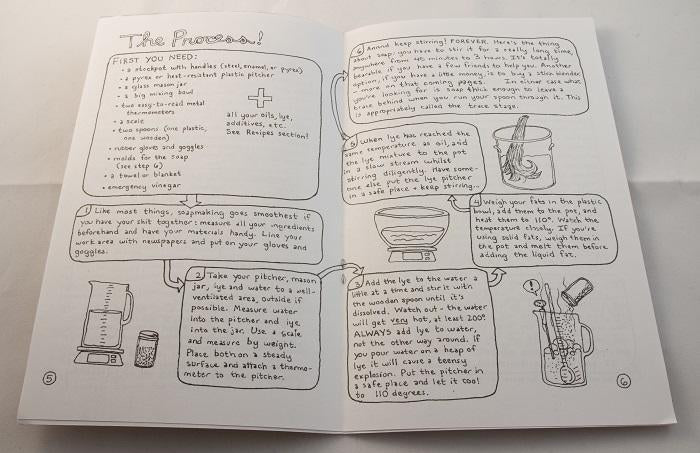 The Process!
FIRST YOU NEED:
• a stockpot with handles (steel, enamel, or pyrex)
• a pyrex or heat-resistant plastic pitcher
• a glass mason jar
• a big mixing bowl
• two easy-to-read metal
thermometers
• a scale
• two spoons (one plastic,
one wooden)
• rubber gloves and goggles
• molds for the soap
(see step 6)
• a towel or blanket
• emergency vinegar
+
all your oils, lye,
additives, etc.
See Recipes section!
1 Like most things, soapmaking goes smoothest if
you have your shit together: measure all your ingredients
beforehand and have your materials handy. Line your
work area with newspapers and put on your gloves and
goggles.
2 Take your pitcher, mason
jar, lye and water to a well-
ventilated area, outside if
possible. Measure water
into the pitcher and lye
into the jar. Use a scale
and measure by weight.
Place both on a steady
surface and attach a thermo-
meter to the pitcher.
5
3 Add the lye to the water a
little at a time and stir it with
the wooden spoon until it's
dissolved. Watch out - the water
will get very hot, at least 200°.
ALWAYS add lye to water,
not the other way around. If
you pour water on a heap of
lye it will cause a teensy
explosion. Put the pitcher in
a safe place and let it cool
to 110 degrees.
4 Weigh your fats in the plastic
bowl, add them to the pot, and
heat them to 110°. Watch the
temperature closely. If you're
using solid fats, weigh them in
the pot and melt them before
adding the liquid fat.
5 When lye has reached the
same temperature as oil, add
the lye mixture to the pot
in a slow stream whilst
stirring diligently. Have some-
one else put the lye pitcher
in a safe place + keep stirring...
6 Aaand keep stirring! FOREVER. Here's the thing
about soap: you have to stir it for a really long time,
anywhere from 40 minutes to 3 hours. It's totally
bearable if you have a few friends to help you. Another
option, if you have a little money, is to buy a stick blender
- more on that coming pages. In either case what
you're looking for is soap thick enough to leave a
trace behind when you run your spoon through it. This
is appropriately called the trace stage.
!
6